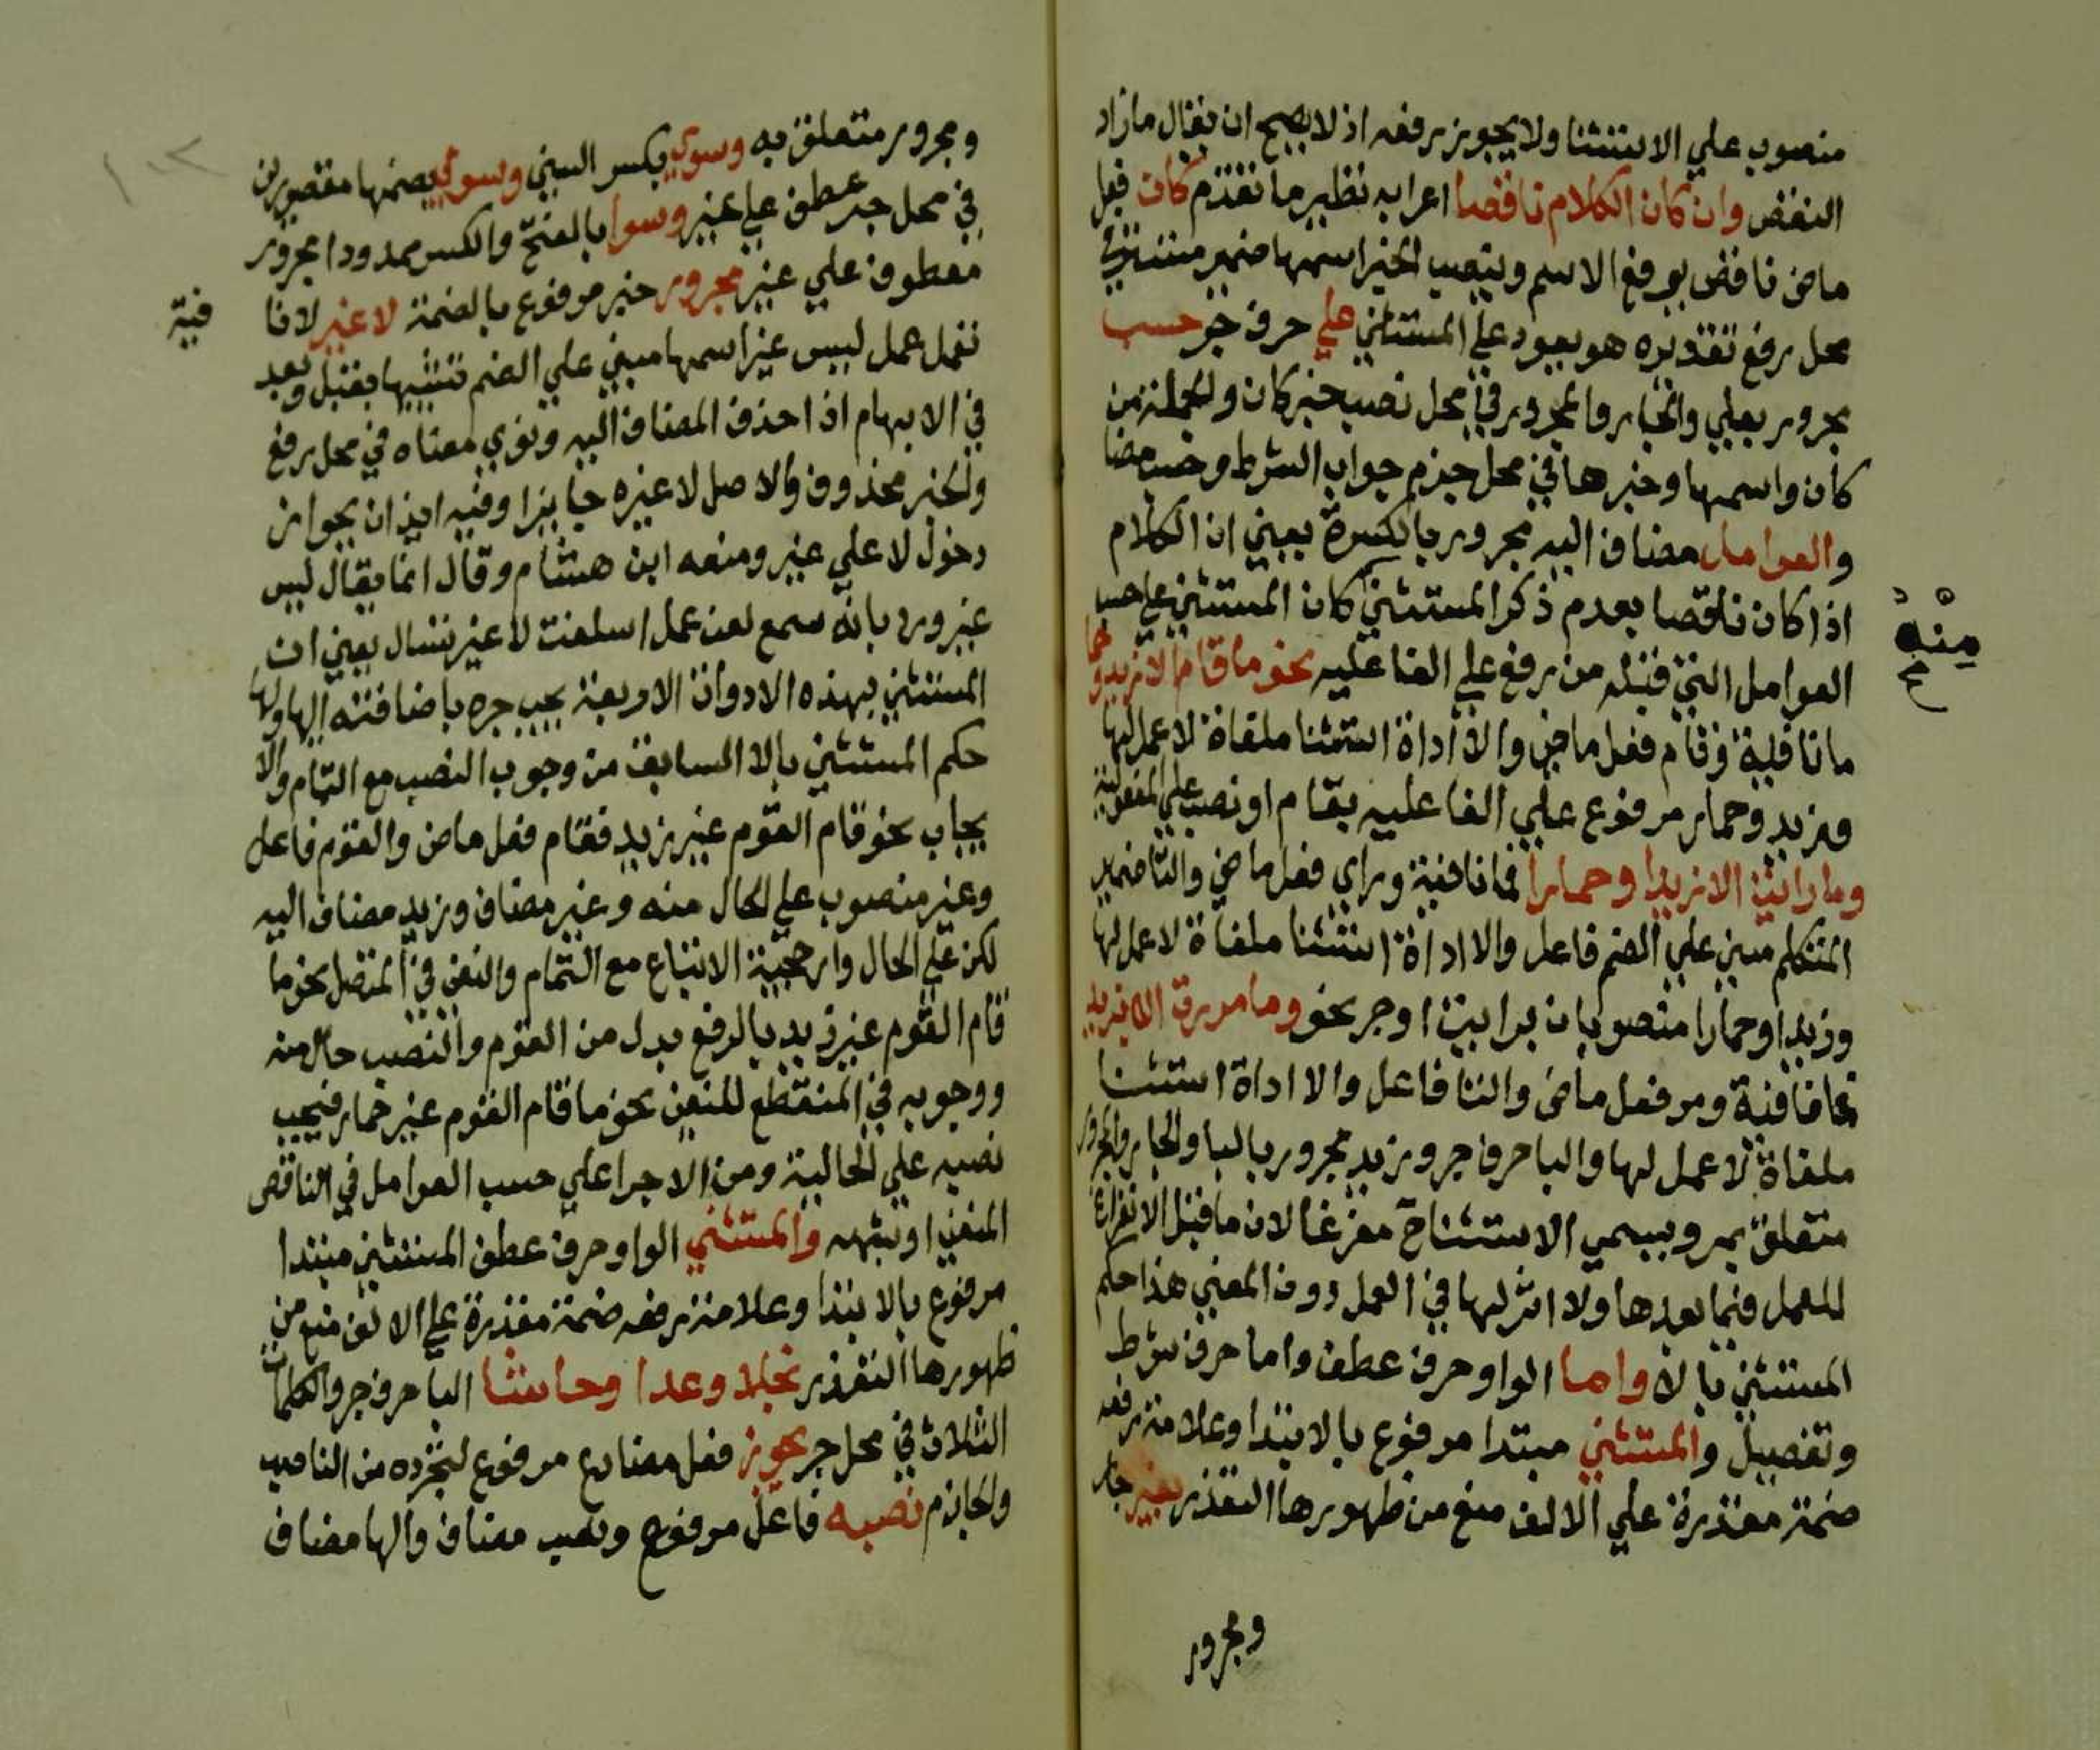 منصوب علي الاستثنا ولا يجوز رفعه اذ لا يصح ان يقال ما زاد
النقض وان كان الكلام ناقصا اعرابه نظير ما تقدم كان فعل
ماض ناقص يرفع الاسم وينصب الخبر اسمها ضمير مستتر في
محل رفع تقديره هو يعود علي المستثني علي حرف جر حسب
مجرور بعلي والجار والمجرور في محل نصب خبر كان والجملة من
كان واسمها وخبرها في محل جزم جواب الشرط وحسب مضا
والعوامل مضاف اليه مجرور بالكسرة يعني ان الكلام
اذا كان ناقصا بعدم ذكر المستثني كان المستثني علي حسب
منه
صح
العوامل التي قبله من رفع علي الفاعليه نحو ما قام الا زيد وحما
ما نافية وقام فعل ماض والا أداة استثنا ملغاة لا عمل لها
وزيد وحمار مرفوع علي الفاعليه بقام او نصب علي المفعولية
وما رايت الا زيدا وحمارا فما نافية وراي فعل ماض والتا ضمير
المتكلم مبني علي الضم فاعل والا اداة استثنا ملغاة لا عمل لها
وزيدا وحمارا منصوبان برايت او جر نحو وما مررت الا بزيد
فما نافية ومر فعل ماض والتا فاعل والا اداة استثنا
ملغاة لا عمل لها والبا حرف جر وزيد مجرور بالبا والجار والمجرور
متعلق بمر ويسمي الاستثناح مفرغا لان ما قبل الا تفرغ
للعمل فيما بعدها ولا اثر لها في العمل دون المعني هذا حكم
المستثني بالا واما الواو حرف عطف واما حرف شرط
وتفصيل والمستثني مبتدا مرفوع بالابتدا وعلامة رفعه
ضمة مقدرة علي الالف منع من ظهورها التعذر بغير جار
ومجرور
ومجرور متعلق به وسوي بكسر السين وسوي بضمها مقصورين
في محل جر عطف علي غير وسوا بالفتح والكسر ممدودا مجرور
معطوف علي غير مجرور خبر مرفوع بالضمة لا غير لا نا
فية
تعمل عمل ليس غير اسمها مبني علي الضم تشبيها بقبل وبعد
في الابهام اذا حذف المضاف اليه ونوي معناه في محل رفع
والخبر محذوف والاصل لا غيره جايزا وفيه ايذان بجواز
دخول لا علي غير ومنعه ابن هشام وقال انما يقال ليس
غير ورد بانه سمع لعن عمل اسلفت لا غير تسال يعني ان
المستثني بهذه الادوات الاربعة يجب جره باضافته اليها ولها
حكم المستثني بالا السابق من وجوب النصب مع التام والا
يجاب نحو قام القوم غير زيد فقام فعل ماض والقوم فاعل
وغير منصوب علي الحال منه وغير مضاف وزيد مضاف اليه
لكن علي الحال وارجحية الاتباع مع التمام والنفي في المتصل نحو ما
قام القوم غير زيد بالرفع بدل من القوم والنصب حال منه
ووجوبه في المنقطع للنفي نحو ما قام القوم غير حمار فيجب
نصبه علي الحالية ومن الاجرا علي حسب العوامل في الناقص
المنفي او شبهه والمستثني الواو حرف عطف المستثني مبتدا
مرفوع بالابتدا وعلامة رفعه ضمة مقدرة علي الالف منع من
ظهورها التعذر بخلا وعدا وحاشا البا حرف جر والكلمات
الثلاث في محل جر يجوز فعل مضارع مرفوع لتجرده من الناصب
والجازم نصبه فاعل مرفوع ونصب مضاف والها مضاف